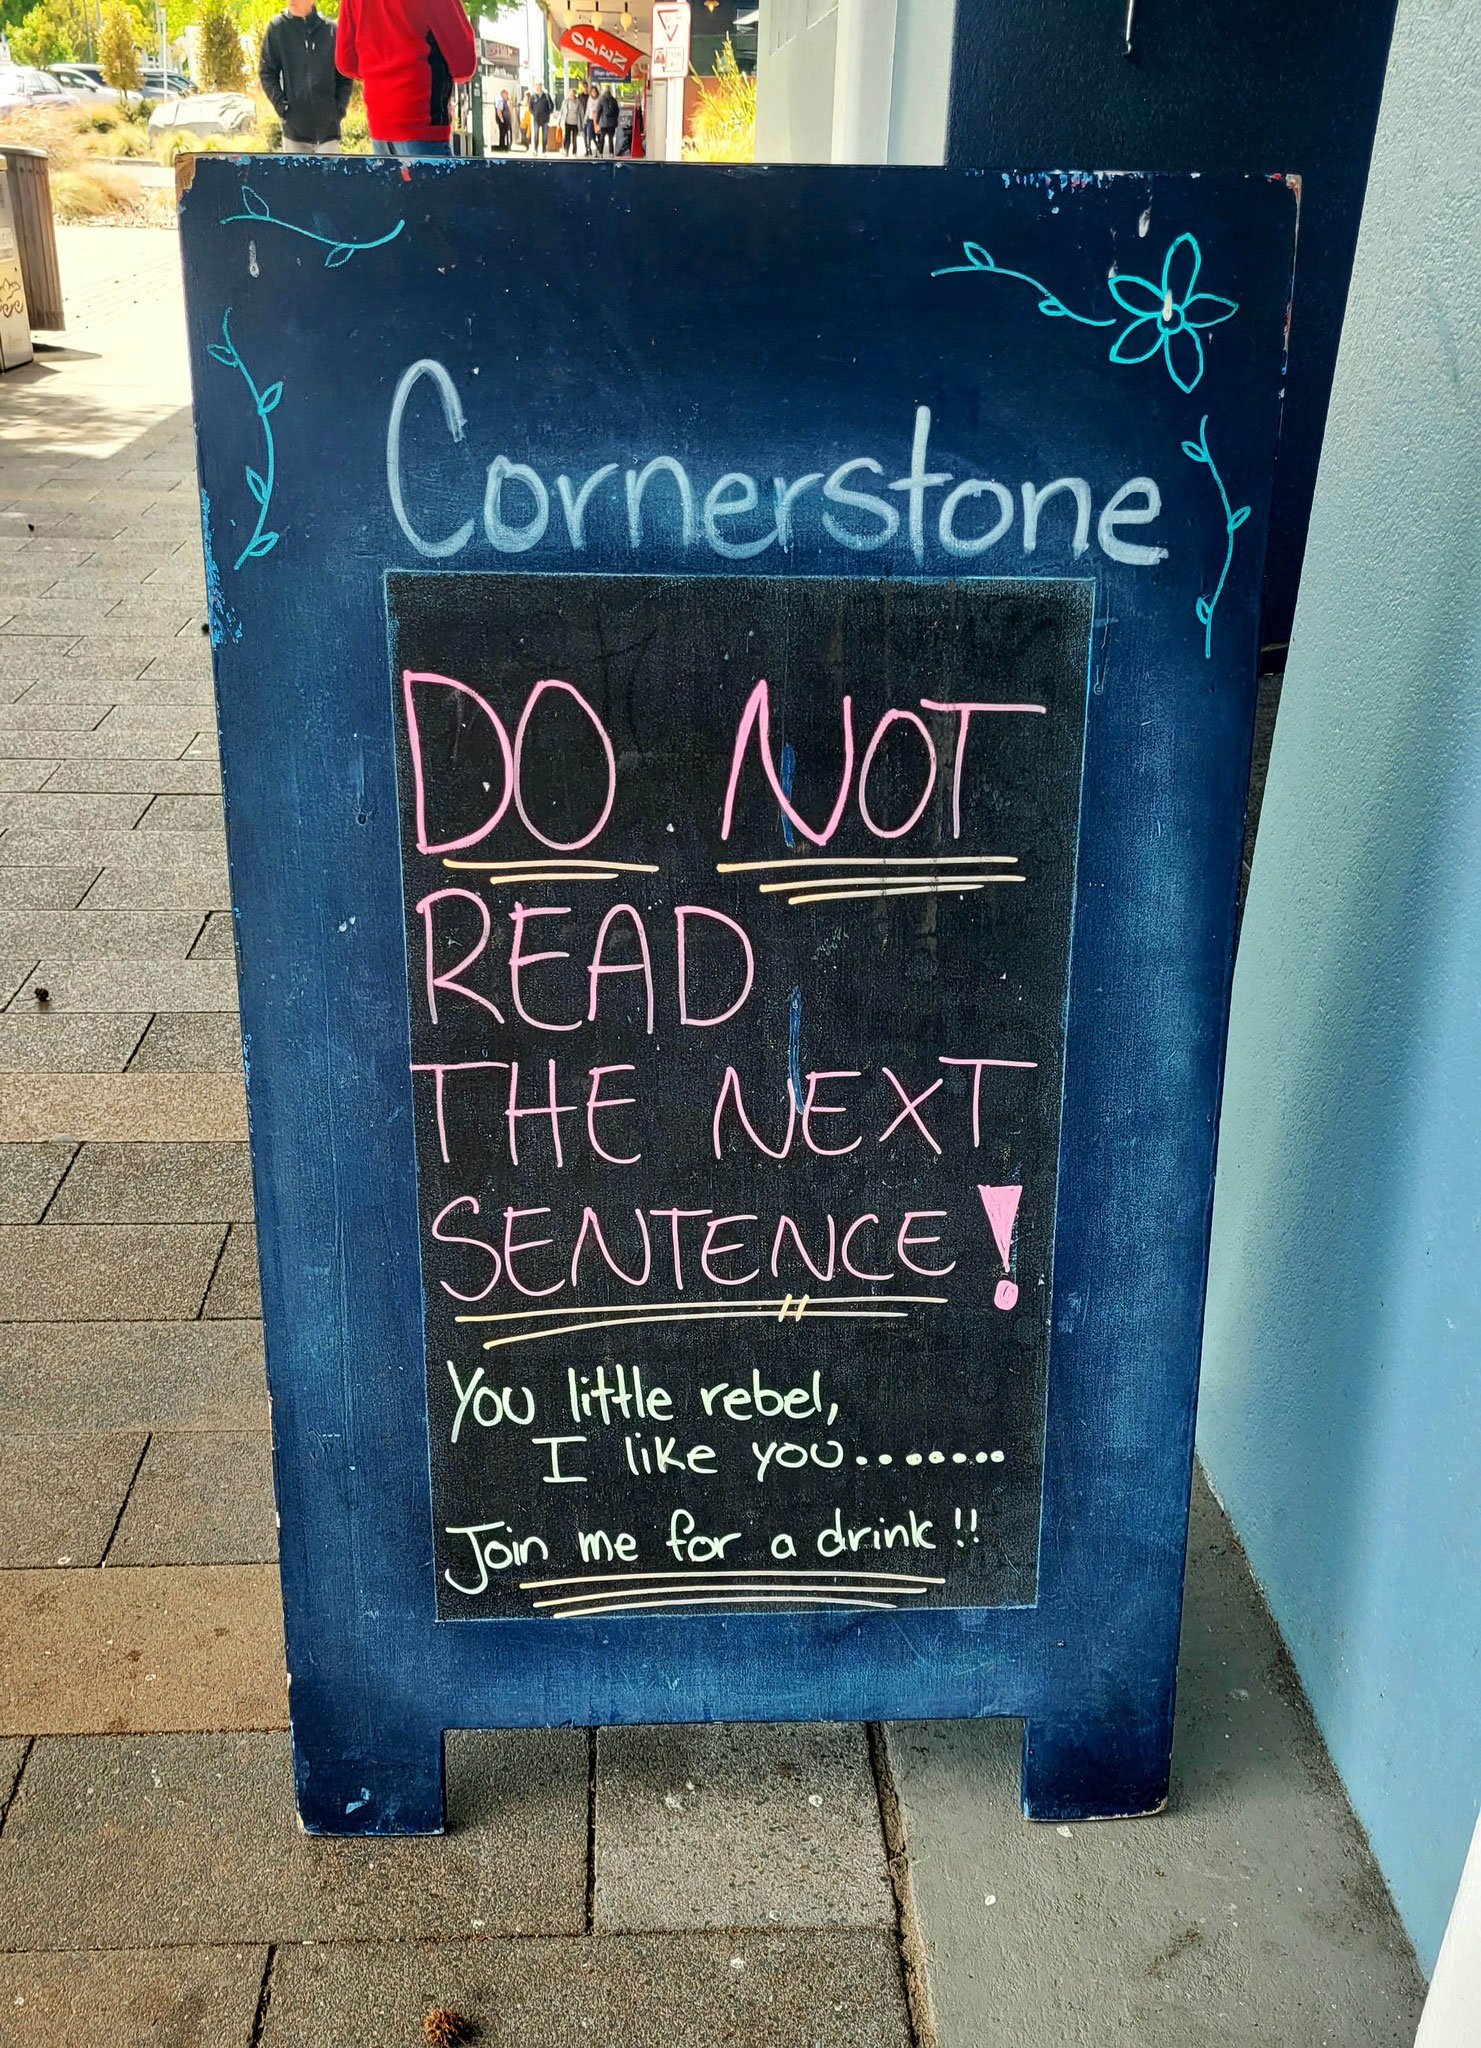 OPEN
Cornerstone
DO NOT
READ
THE NEXT
SENTENCE!
You little rebel,
I like you.......
Join me for a drink!!